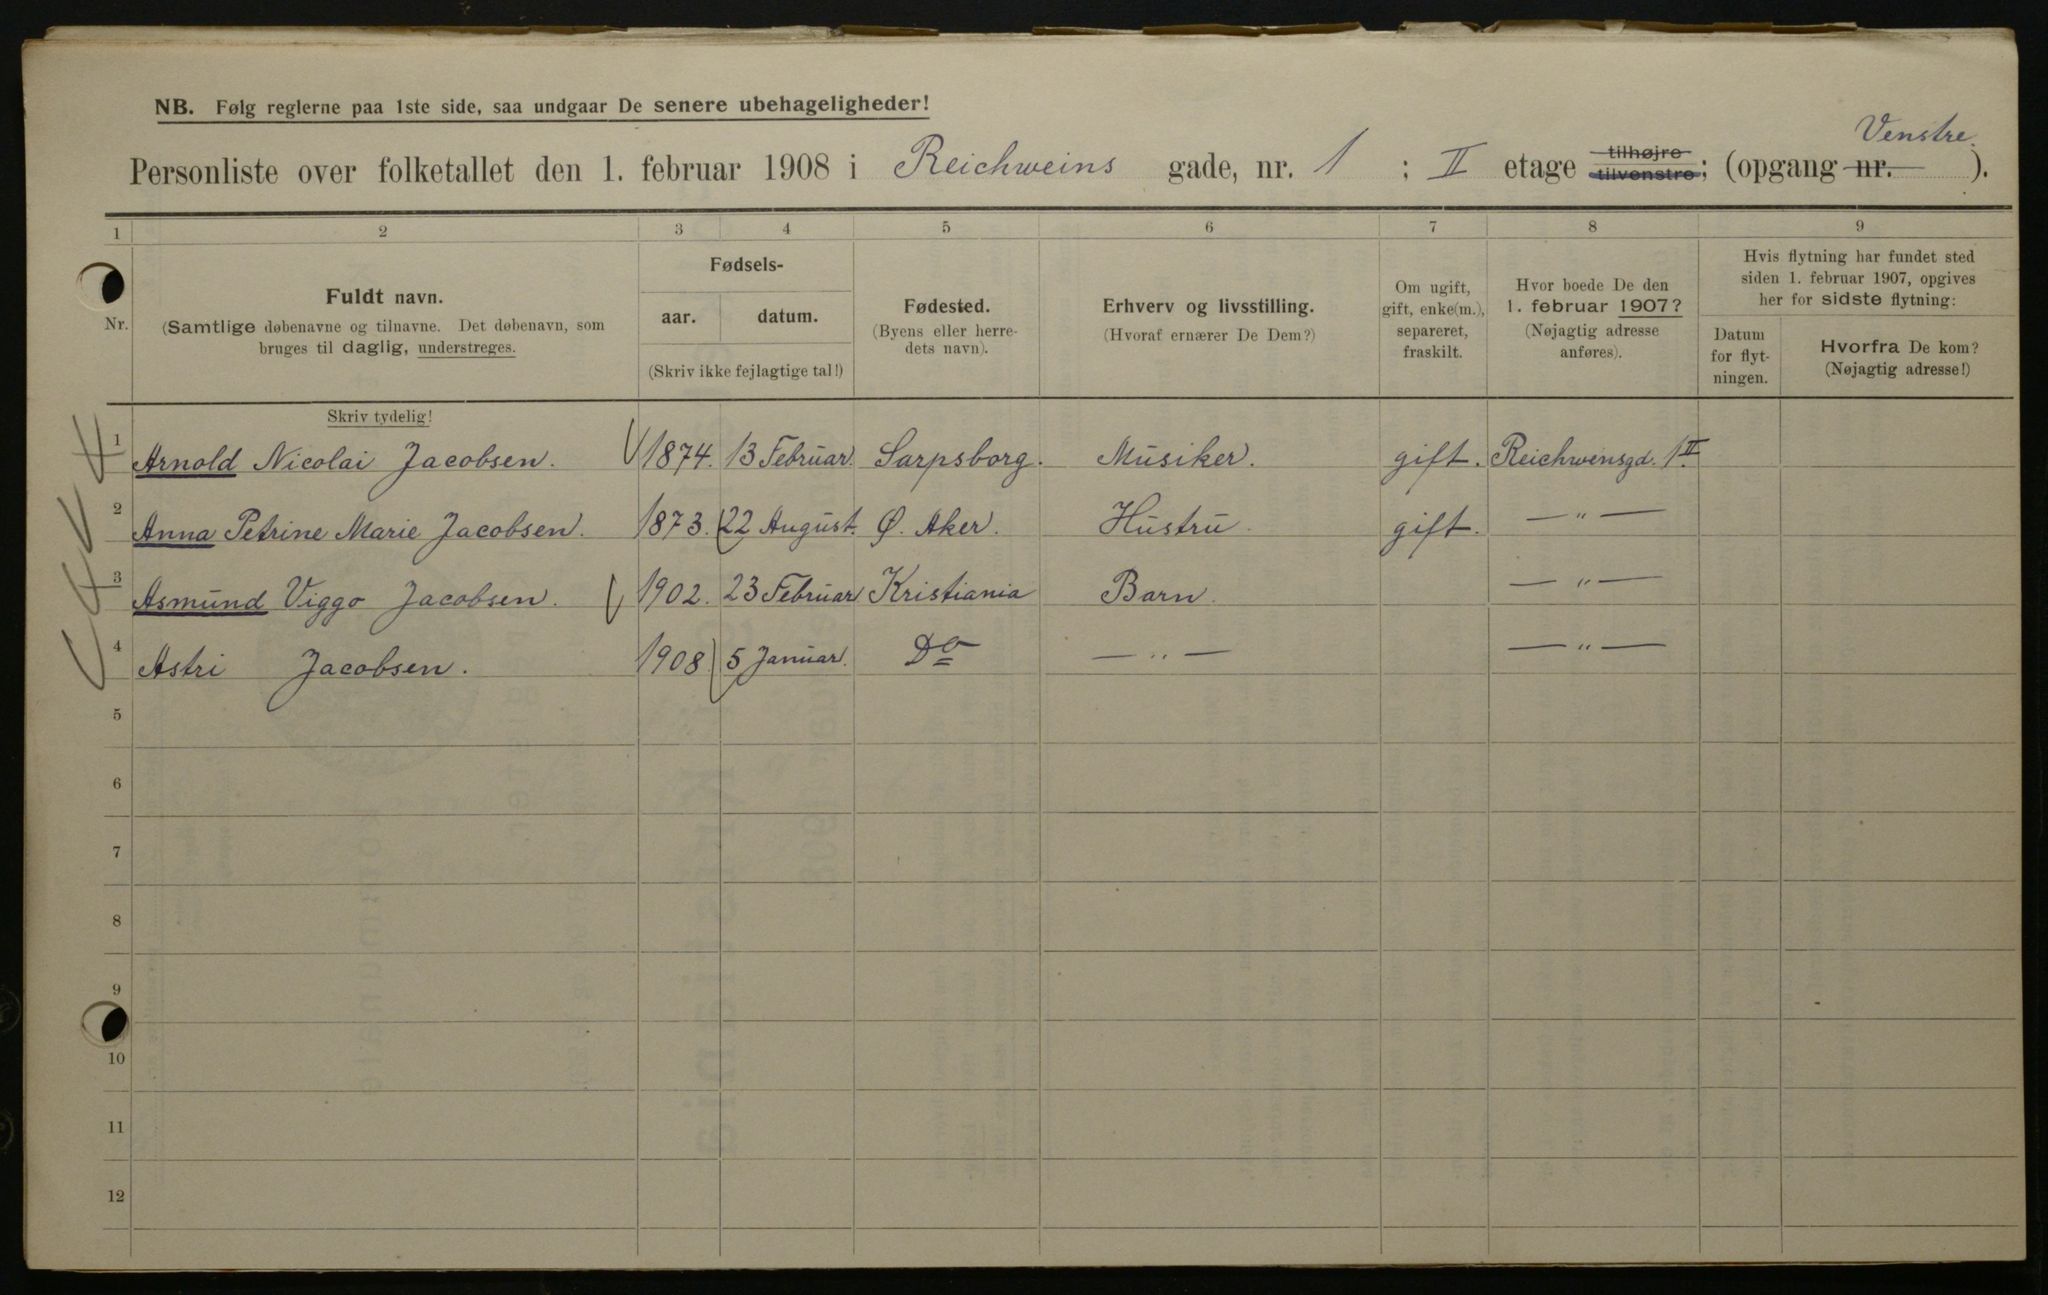 NB. Følg reglerne paa 1ste side, saa undgaar De senere ubehageligheder!
Venstre.
Personliste over folketallet den 1. februar 1908 i Reichweins gade, nr. 1 ; II etage tilhøjre tilvenstre; (opgang nr. ).
1 2 3 4 5 6 7 8 9
Nr.
Fuldt navn.
(Samtlige døbenavne og tilnavne. Det døbenavn, som
bruges til daglig, understreges.
Fødsels-
aar. datum.
(Skriv ikke fejlagtige tal!)
Fødested.
(Byens eller herre-
dets navn).
Erhverv og livsstilling.
(Hvoraf ernærer De Dem?)
Om ugift,
gift, enke(m.),
separeret,
fraskilt.
Hvor boede De den
1. februar 1907?
(Nøjagtig adresse
anføres).
Hvis flytning har fundet sted
siden 1. februar 1907, opgives
her for sidste flytning:
Datum
for flyt-
ningen.
Hvorfra De kom?
(Nøjagtig adresse!)
Skriv tydelig!
1 Arnold Nicolai Jacobsen. 1874. 13 Februar. Sarpsborg. Musiker. gift. Reichwensgd. 1 II
2 Anna Petrine Marie Jacobsen. 1873. 22 August. Ø. Aker. Hustru. gift. — " —
3 Asmund Viggo Jacobsen. 1902. 23 Februar Kristiania Barn. — " —
4 Astri Jacobsen. 1908. 5 Januar. Do — " — — " —
5
6
7
8
9
10
11
12